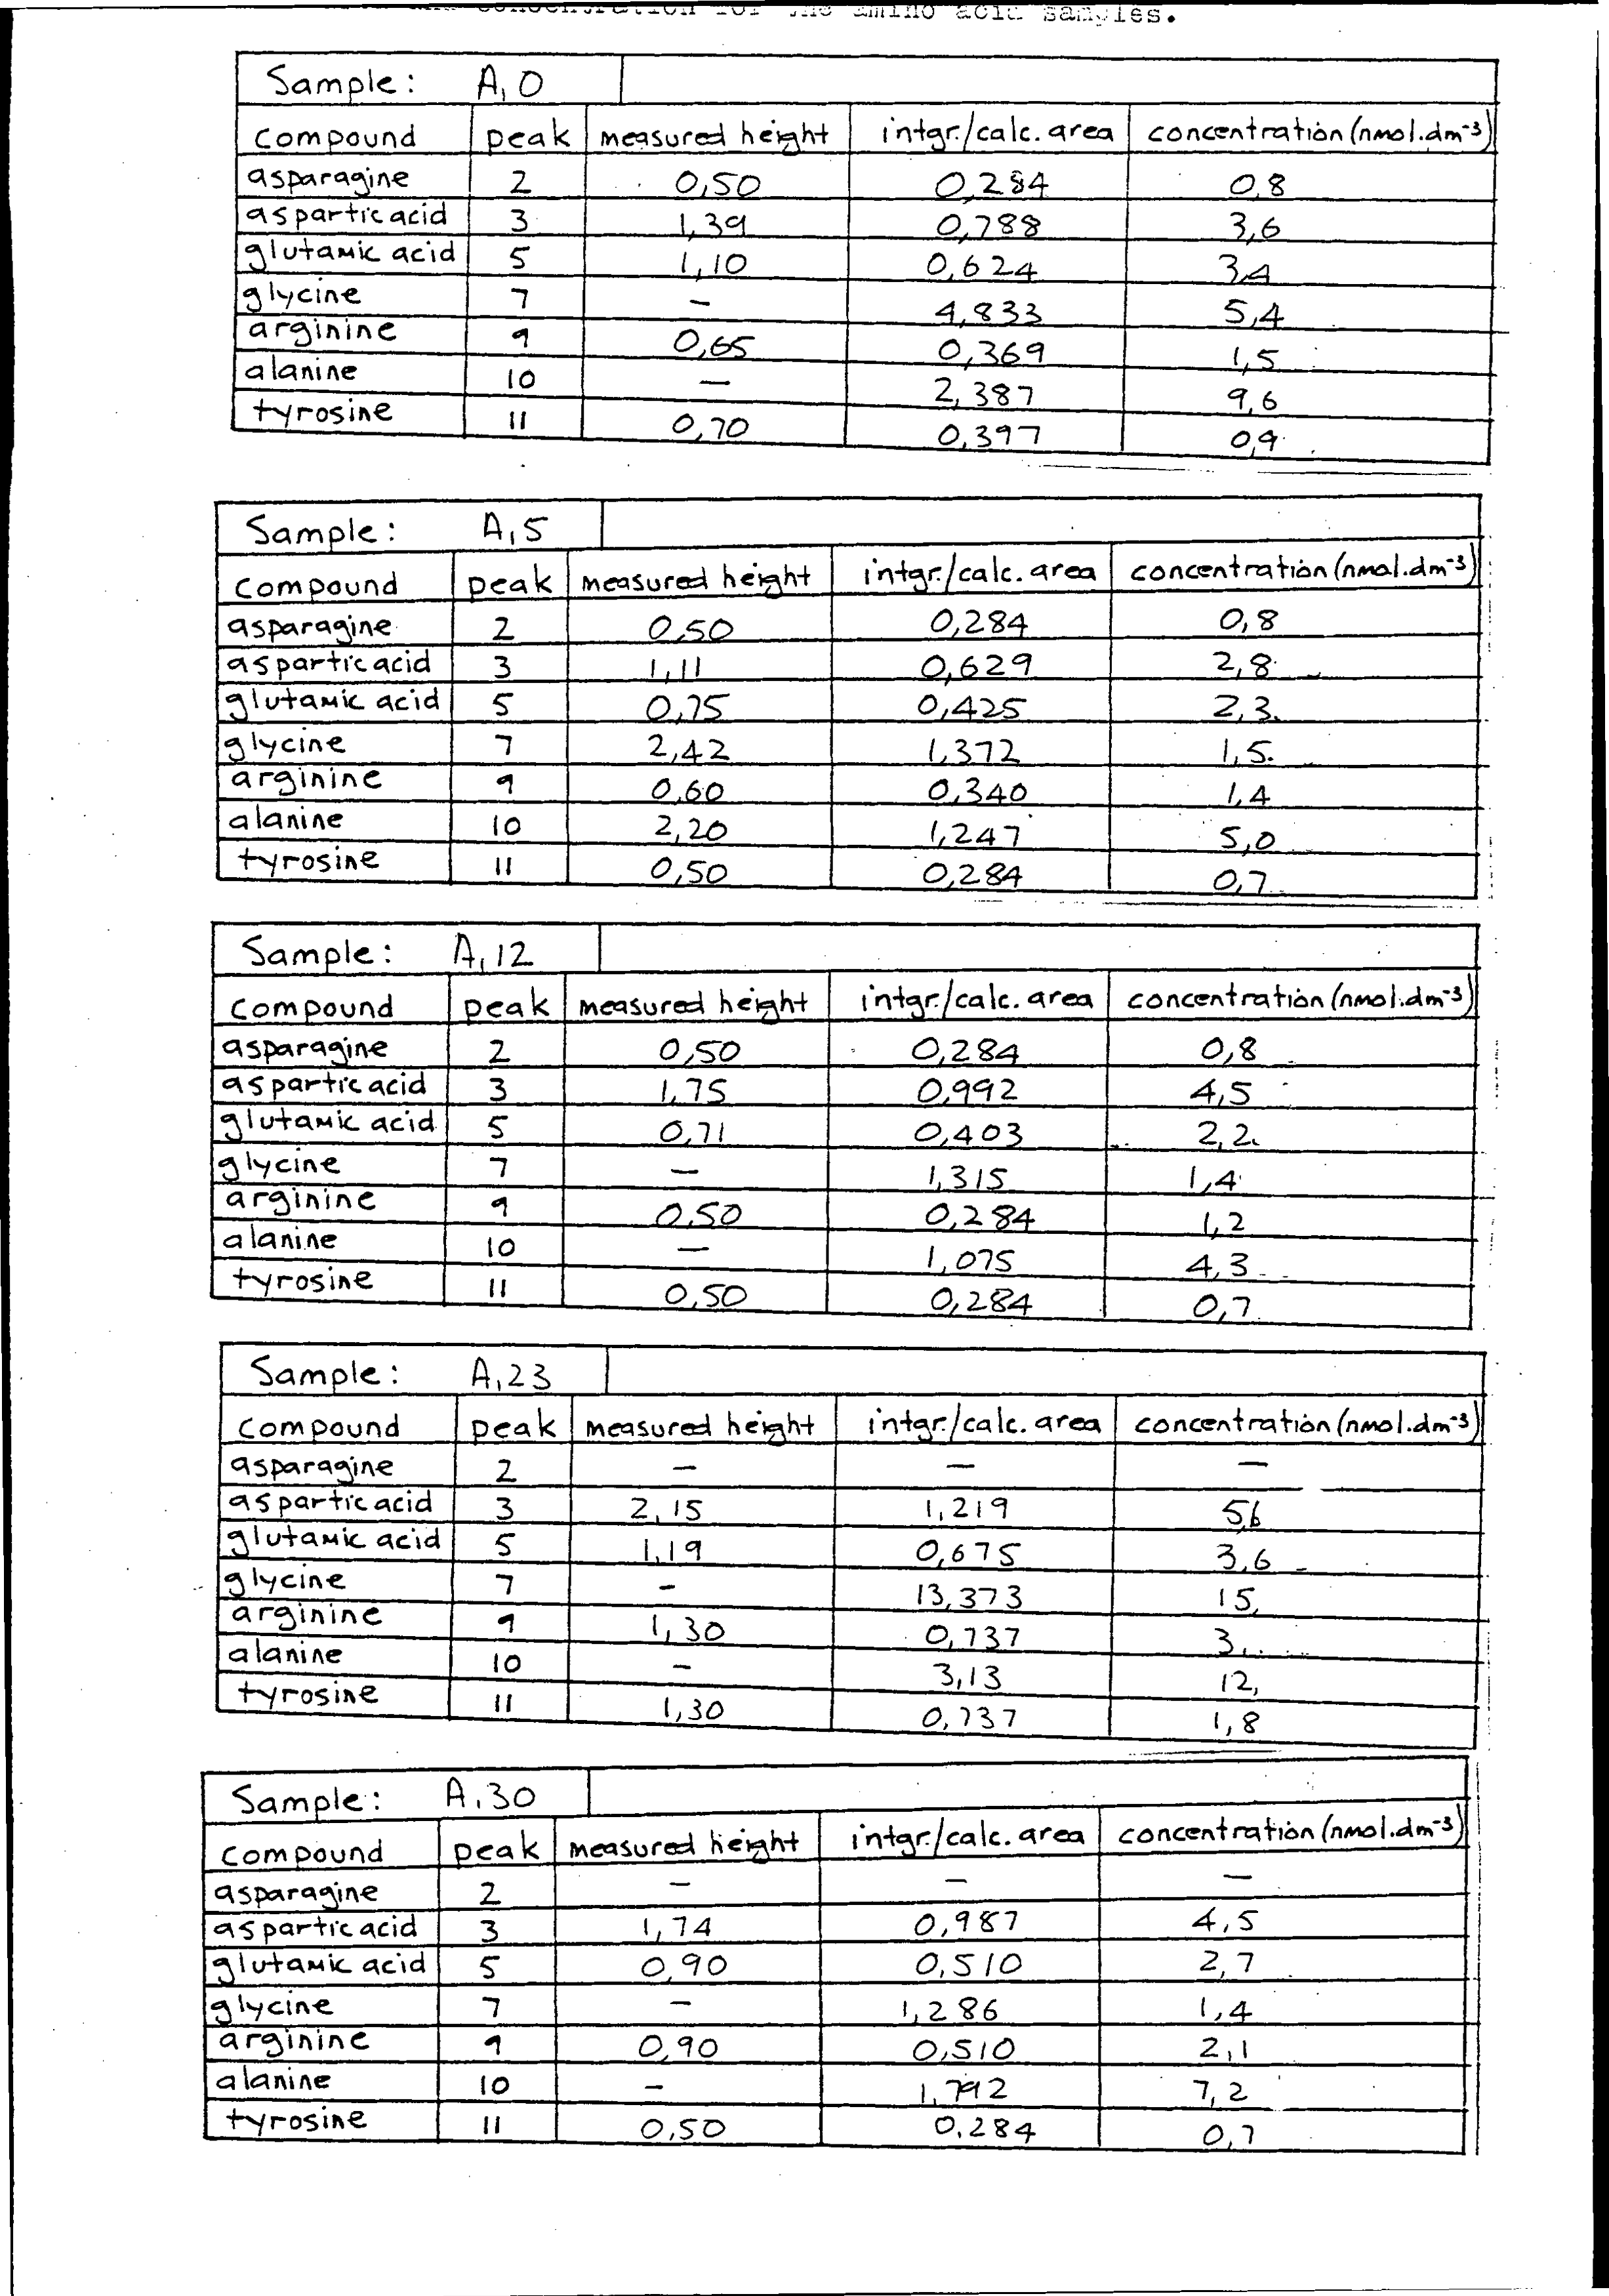 concentration for the amino acid samples.
Sample: A,0
compound peak measured height intgr./calc. area concentration (nmol.dm-3)
asparagine 2 0,50 0,284 0,8
aspartic acid 3 1,39 0,788 3,6
glutamic acid 5 1,10 0,624 3,4
glycine 7 – 4,833 5,4
arginine 9 0,65 0,369 1,5
alanine 10 – 2,387 9,6
tyrosine 11 0,70 0,397 0,9
Sample: A,5
compound peak measured height intgr./calc. area concentration (nmol.dm-3)
asparagine 2 0,50 0,284 0,8
aspartic acid 3 1,11 0,629 2,8
glutamic acid 5 0,75 0,425 2,3
glycine 7 2,42 1,372 1,5
arginine 9 0,60 0,340 1,4
alanine 10 2,20 1,247 5,0
tyrosine 11 0,50 0,284 0,7
Sample: A,12
compound peak measured height intgr./calc. area concentration (nmol.dm-3)
asparagine 2 0,50 0,284 0,8
aspartic acid 3 1,75 0,992 4,5
glutamic acid 5 0,71 0,403 2,2
glycine 7 – 1,315 1,4
arginine 9 0,50 0,284 1,2
alanine 10 – 1,075 4,3
tyrosine 11 0,50 0,284 0,7
Sample: A,23
compound peak measured height intgr./calc. area concentration (nmol.dm-3)
asparagine 2 – – –
aspartic acid 3 2,15 1,219 5,6
glutamic acid 5 1,19 0,675 3,6
glycine 7 – 13,373 15,
arginine 9 1,30 0,737 3,
alanine 10 – 3,13 12,
tyrosine 11 1,30 0,737 1,8
Sample: A,30
compound peak measured height intgr./calc. area concentration (nmol.dm-3)
asparagine 2 – – –
aspartic acid 3 1,74 0,987 4,5
glutamic acid 5 0,90 0,510 2,7
glycine 7 – 1,286 1,4
arginine 9 0,90 0,510 2,1
alanine 10 – 1,792 7,2
tyrosine 11 0,50 0,284 0,7